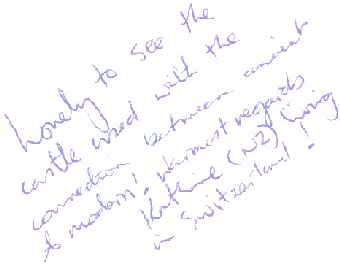 Lovely to see the
castle used with the
connection between ancient
to modern, warmest regards
Kathrine (NZ) living
in Switzerland!